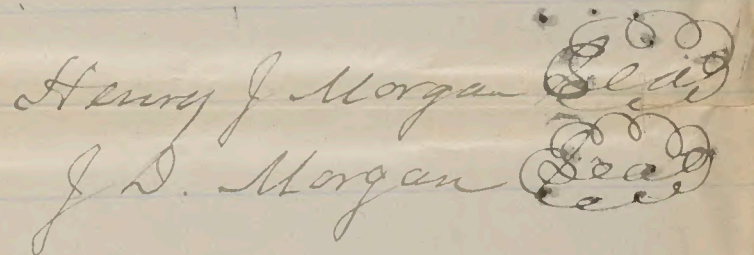 Henry J Morgan Seal
J D. Morgan Seal